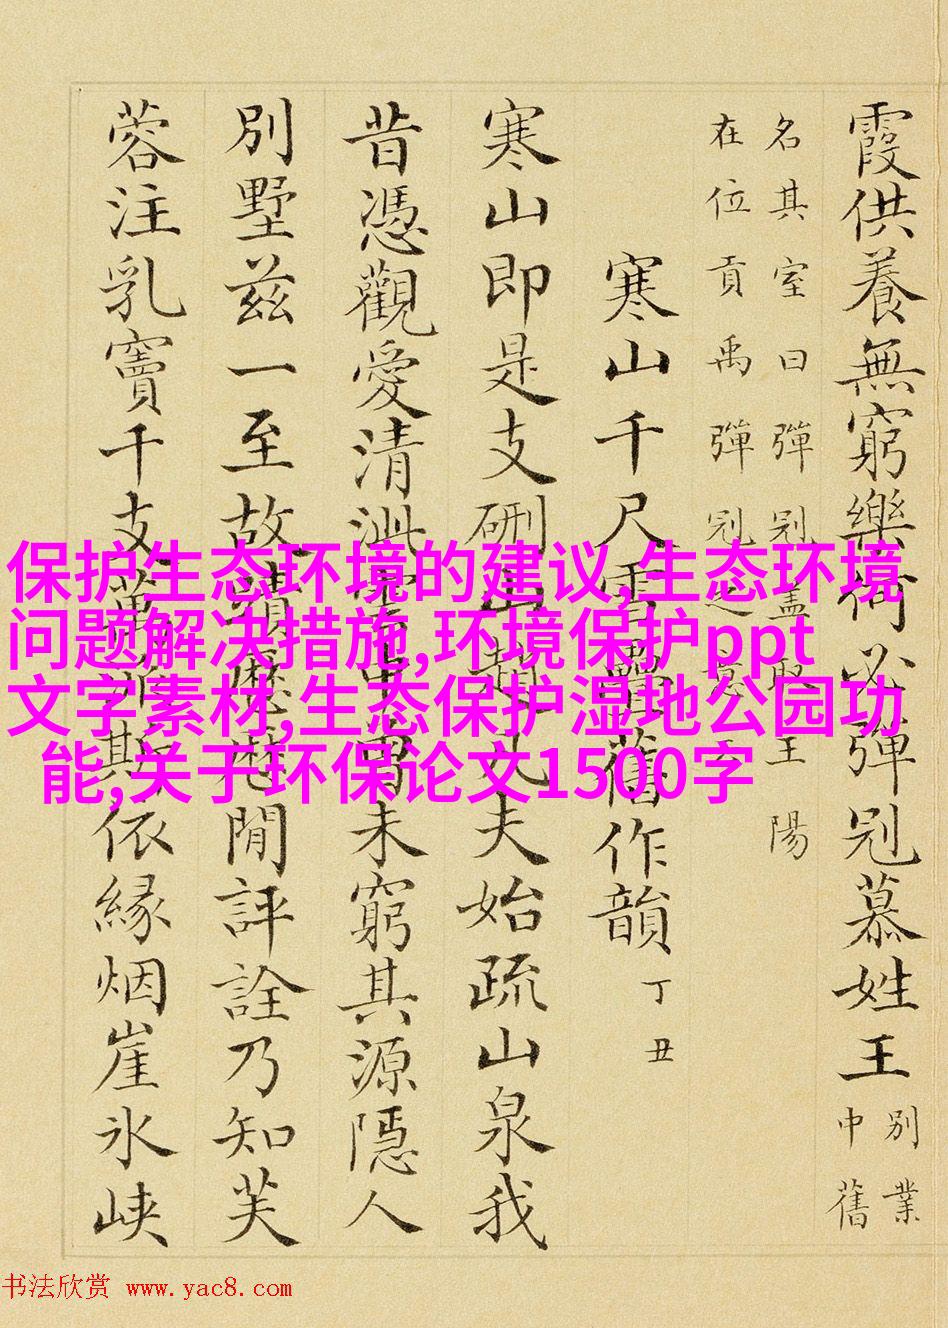 霞供養無窮樂 必彈冠慕姓王
別業
中舊
名其室曰彈冠蓋取王陽
在位貢禹彈冠之意
寒山千尺雪疊舊作韻 丁丑
寒山即是支硎山趙凡夫始疏山泉我
昔憑觀愛清泚 未窮其源隱人
別墅茲一至故蹟歷 閒評詮乃知芙
蓉注乳竇千支萬派其依緣烟崖氷峽
保护生态环境的建议,生态环境
问题解决措施,环境保护ppt
文字素材,生态保护湿地公园功
能,关于环保论文1500字
书法欣赏 www.yac8.com